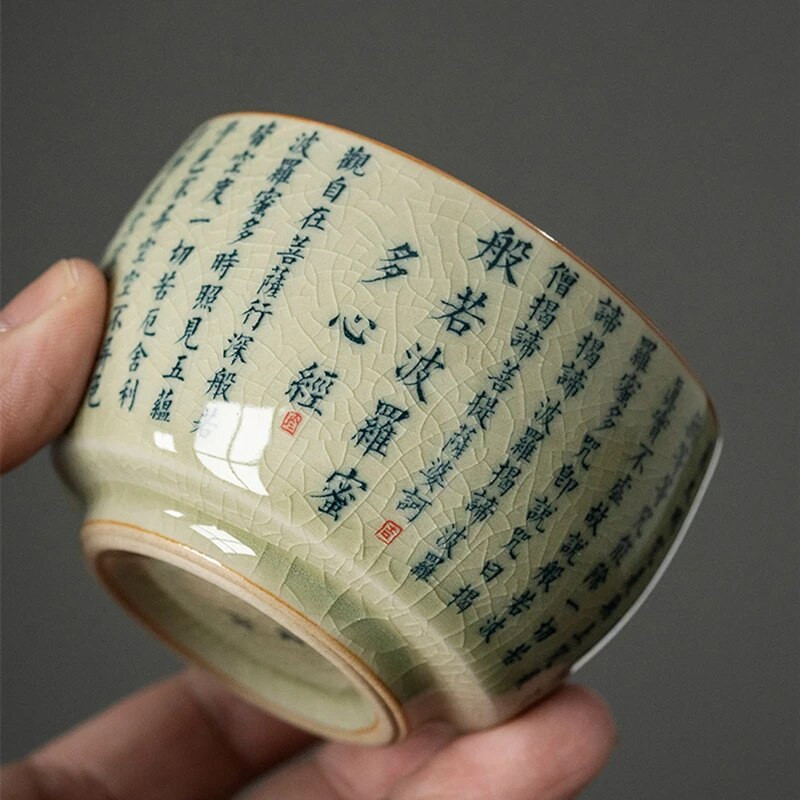 等等咒能除一切苦
真實不虛故說般若波
羅蜜多咒即說咒曰揭
諦揭諦波羅揭諦波羅
僧揭諦菩提薩婆訶
般若波羅蜜
多心經
觀自在菩薩行深般若
波羅蜜多時照見五蘊
皆空度一切苦厄舍利
子色不異空空不異色